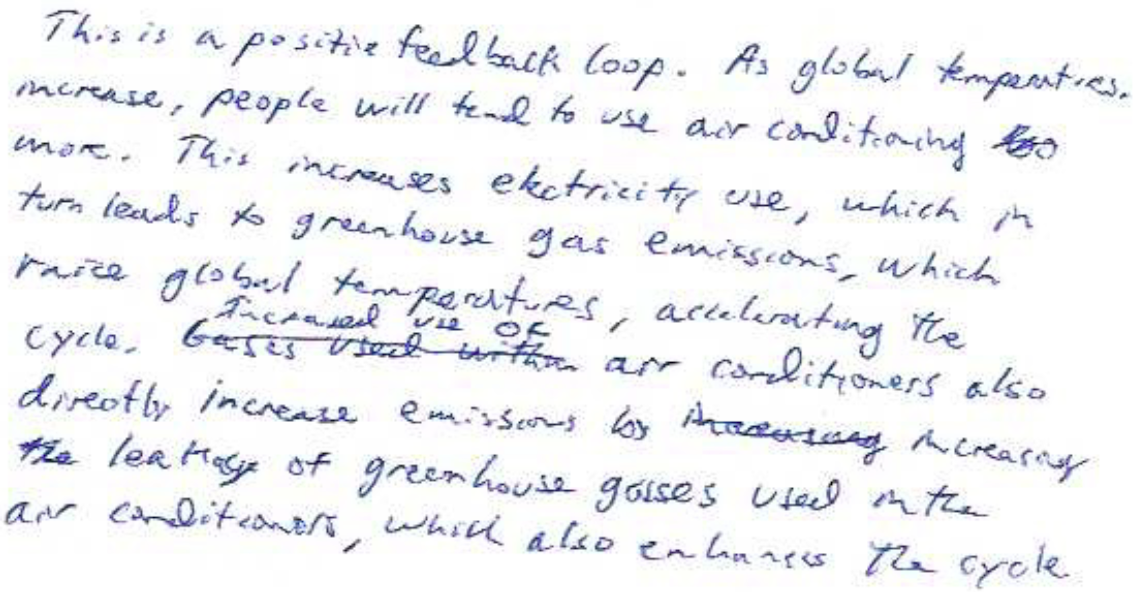 This is a positive feedback loop. As global temperatures.
increase, people will tend to use air conditioning
more. This increases electricity use, which in
turn leads to greenhouse gas emissions, which
raise global temperatures, accelerating the
cycle. Increased use of air conditioners also
directly increase emissions by increasing
the leakage of greenhouse gasses used in the
air conditioners, which also enhances the cycle